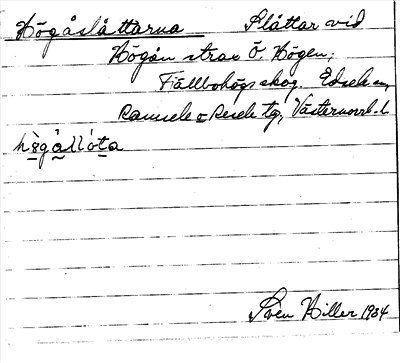 Högåslåttarna Slåttar vid
Högån strax Ö. Högen;
Fällbohögs skog. Edsele sn,
Ramsele o Resele tg, Västernorrl. l.
Sven Hiller 1934